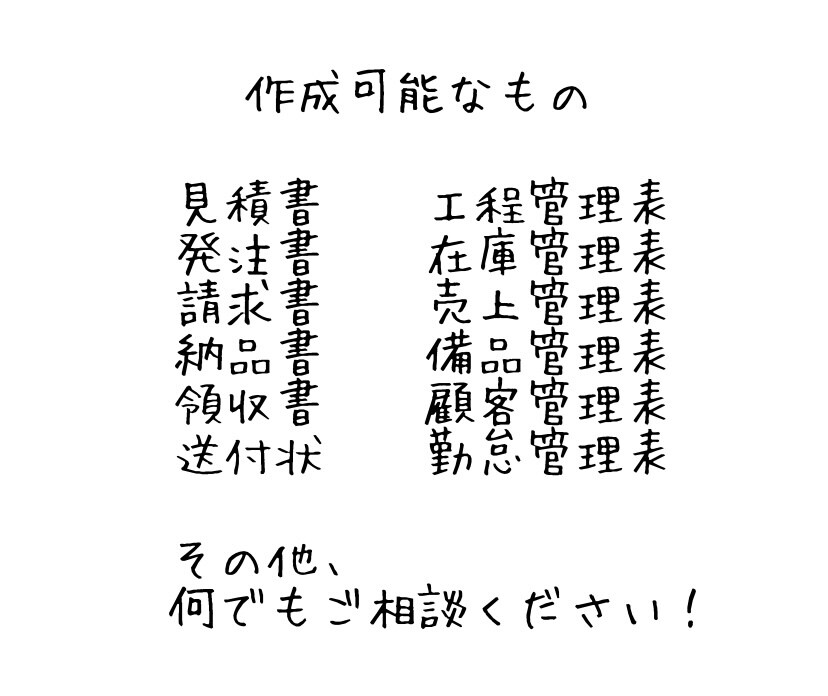 作成可能なもの
見積書
発注書
請求書
納品書
領収書
送付状
工程管理表
在庫管理表
売上管理表
備品管理表
顧客管理表
勤怠管理表
その他、
何でもご相談ください!